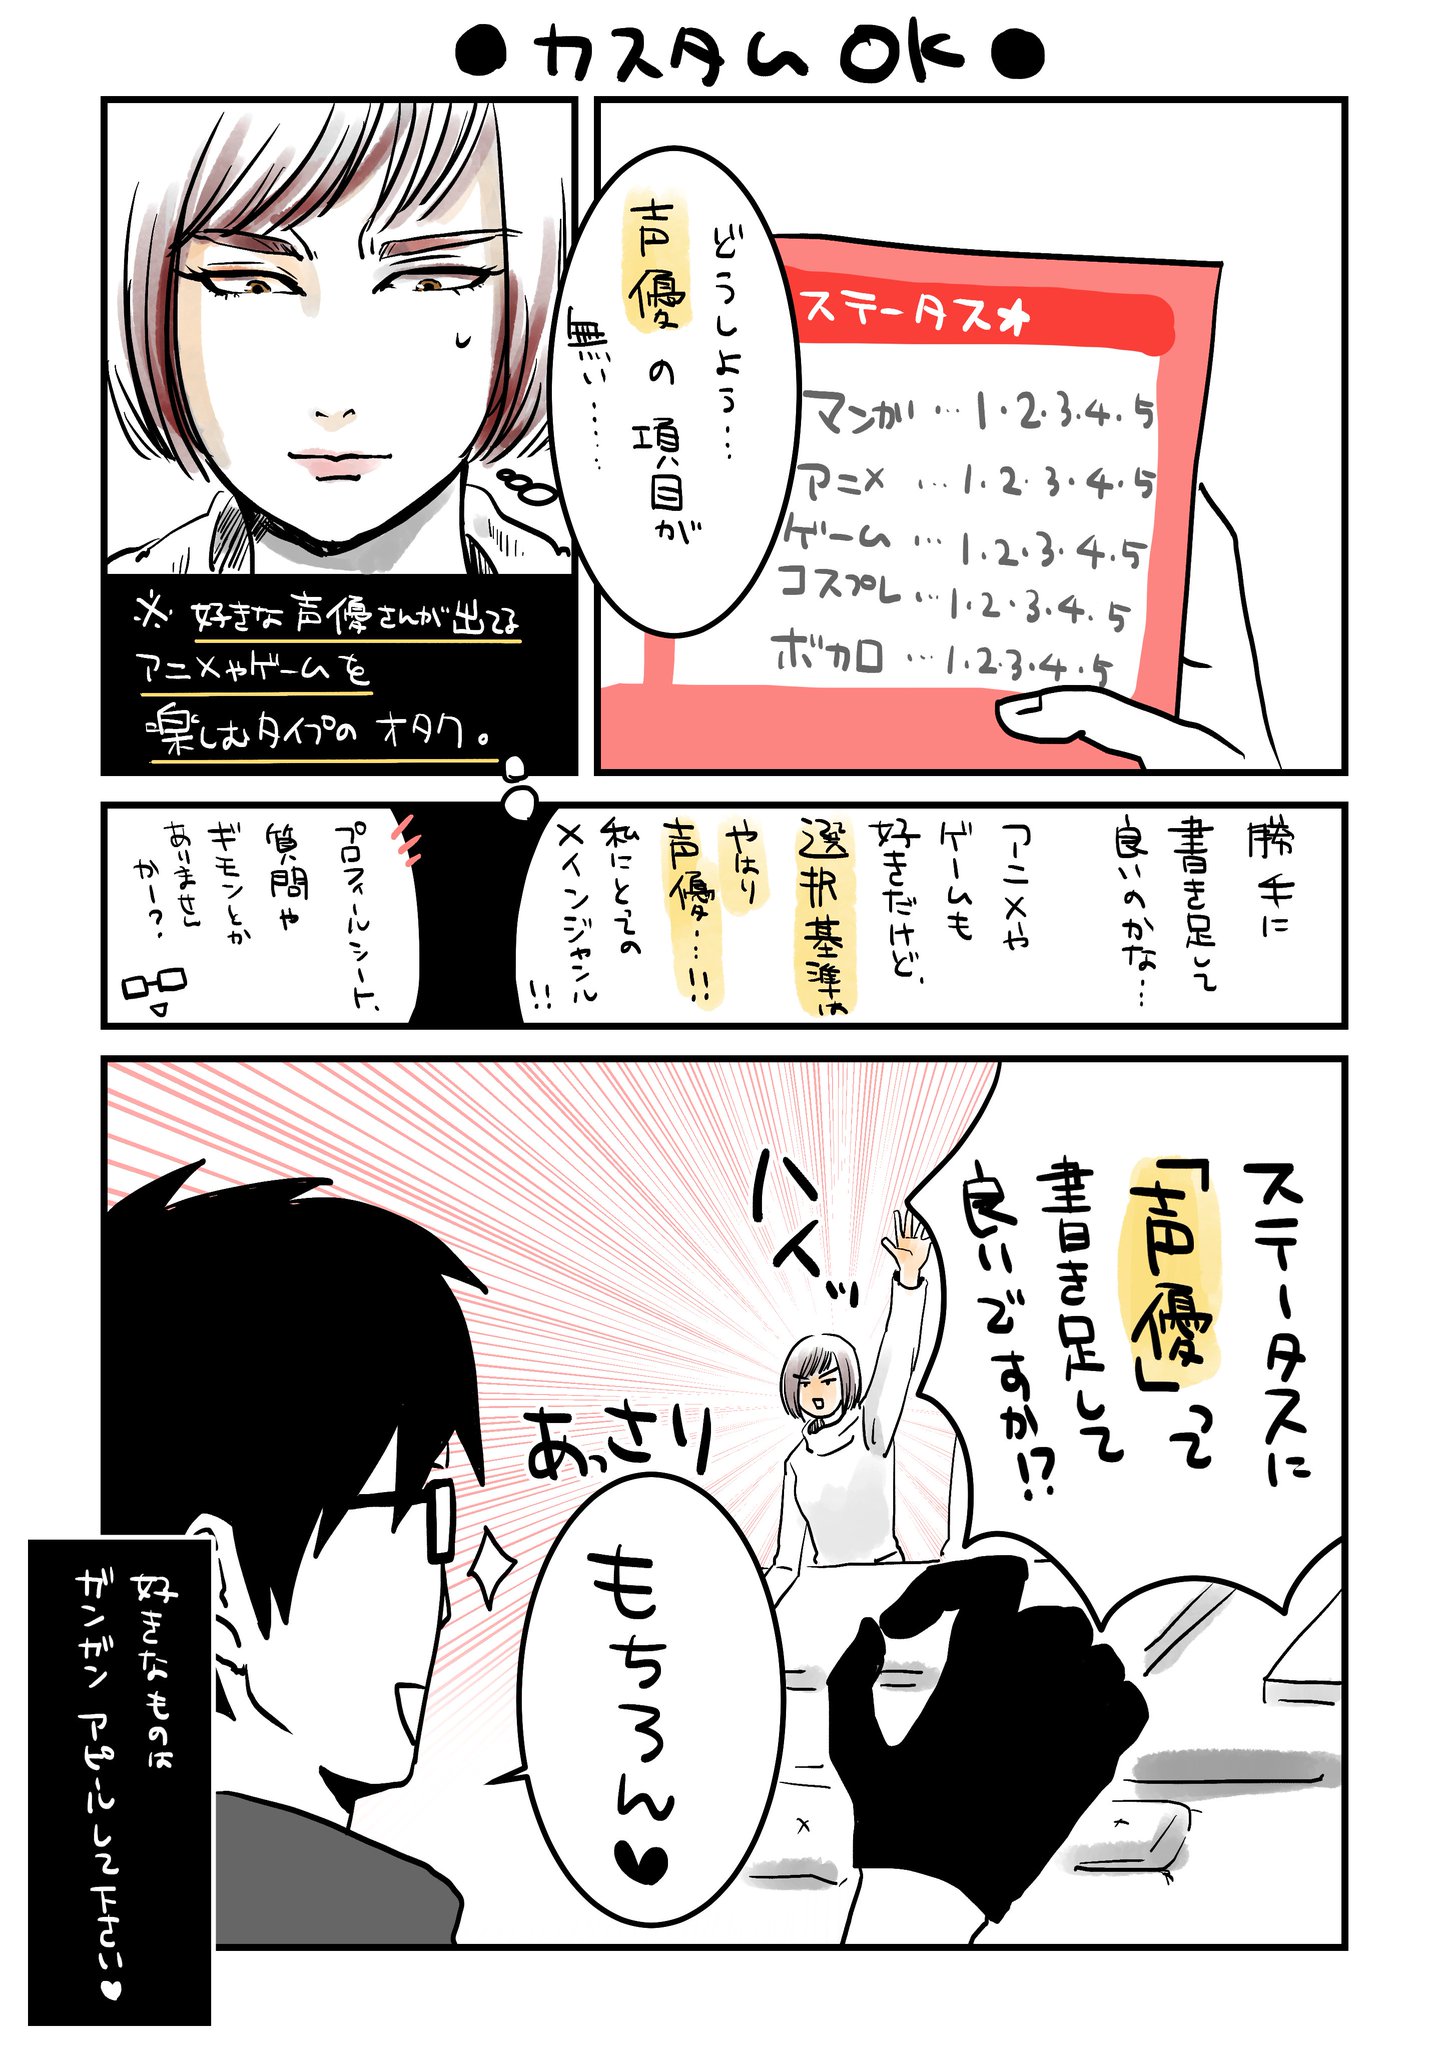 ●カスタムOK●
ステータス★
マンガ…1・2・3・4・5
アニメ…1・2・3・4・5
ゲーム…1・2・3・4・5
コスプレ…1・2・3・4・5
ボカロ…1・2・3・4・5
どうしよう…
声優の項目が
無い……
※好きな声優さんが出てる
アニメやゲームを
楽しむタイプのオタク。
勝手に
書き足して
良いのかな…
アニメや
ゲームも
好きだけど、
選択基準は
やはり
声優…!!
私にとっての
メインジャンル
!!
プロフィールシート、
質問や
ギモンとか
ありません
かー?
ステータスに
「声優」って
書き足して
良いですか!?
ハイッ
あっさり
もちろん♥
好きなものは
ガンガンアピールして下さい♥